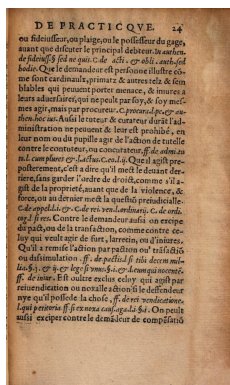 DE PRACTICQVE. 24
ou fideiusseur, ou plaige, ou le possesseur du gage,
auant que discuter le principal debteur. in authen-
de fideiuss. § sed ne quis. C. de acti. & obli. auth. sed
hodie. Que le demandeur est personne illustre cô-
me sont cardinaulx, primatz & autres telz & sem
blables qui peuuent porter menace, & iniures a
leurs aduersaires, qui ne peult par soy, & soy mes-
mes agir, mais par procureur. C. procura. l. pe. & au-
then. hoc ius. Aussi le tuteur & curateur durât l'ad-
ministration ne peuuent & leur est prohibé, en
leur nom ou du pupille agir de l'action de tutelle
contre le contuteur, ou concurateur, ff. de admi. tu
Que il agist pre-
posterement, c'est a dire qu'il mect le deuant der-
riere, sans garder l'ordre de droict, comme s'il a-
gist de la proprieté, auant que de la violence, &
force, ou au dernier mect la questiô preiudicialle-
C. de appel. l. C. de rei. ven. l. ordinarij. C. de ordi.
cog. l. si res. Contre le demandeur aussi on excipe
du pact, ou de la transaction, comme contre ce-
luy qui veult agir de furt, larrecin, ou d'iniures.
Qu'il a remise l'action par paction ou trâsactiô
ou dissimulation. ff. de pactis. l si tibi decem mil-
lia. §. j. & ij. & lege si vnus. §. j. & l. eum qui nocentê.
ff. de iniur. Est oultre exclus celuy qui agist par
reuendication ou noxalle action si le defendeur
nye qu'il possede la chose. ff. de rei vendicatione.
l. qui petitorio ff si ex noxa caus. aga. On peult
aussi exciper contre le demâdeur de compésatiô